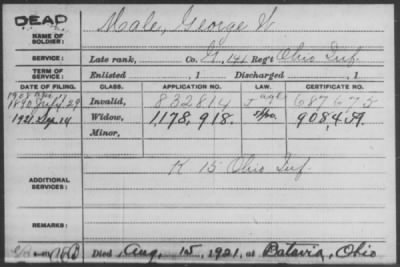 DEAD
Male, George W
NAME OF SOLDIER:
SERVICE: Late rank, Co. G, 141 Reg't Ohio Inf.
TERM OF SERVICE: Enlisted , 1 Discharged , 1
DATE OF FILING. CLASS. APPLICATION NO. LAW. CERTIFICATE NO.
1890 July 29 Invalid, 832814 687675
1921 Sep. 14 Widow, 1,178,918.
Minor,
K 15 Ohio Inf.
ADDITIONAL SERVICES:
REMARKS:
Died Aug. 15, 1921, at Batavia, Ohio